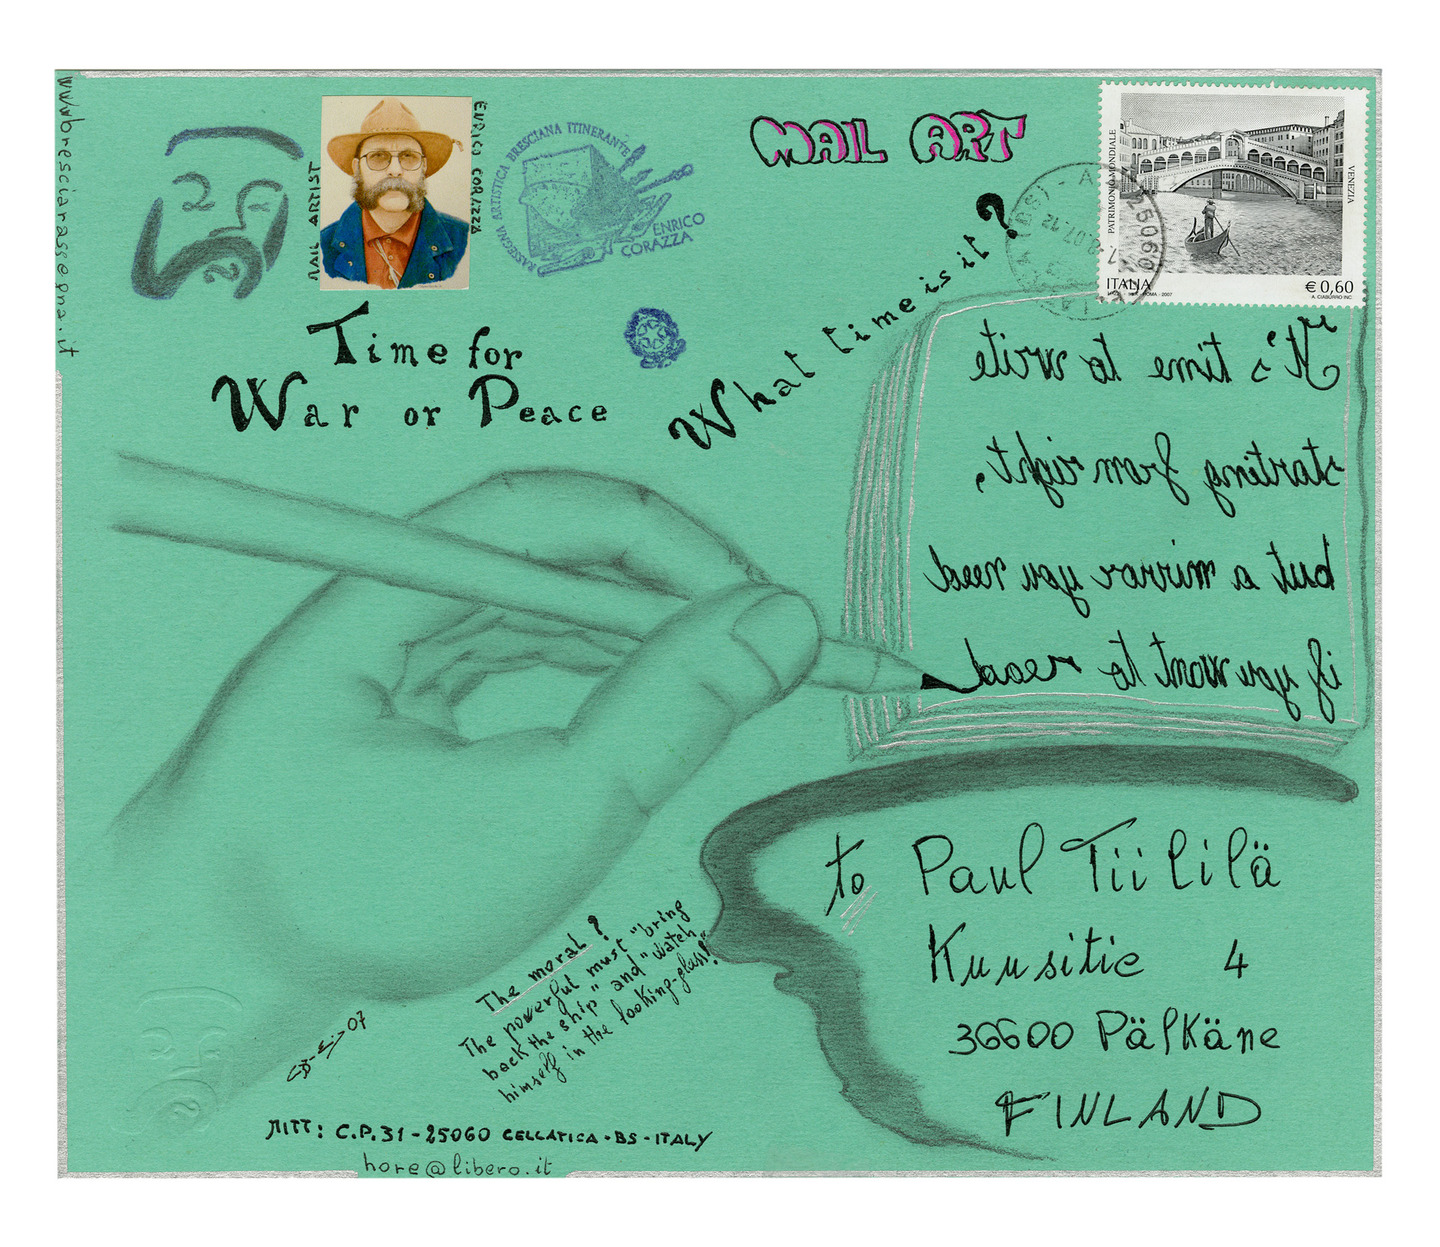 www.brescianarassegna.it
MAIL ARTIST
ENRICO CORAZZA
RASSEGNA ARTISTICA BRESCIANA ITINERANTE
ENRICO
CORAZZA
MAIL ART
PATRIMONIO MONDIALE
VENEZIA
ITALIA
€ 0,60
ROMA - 2007
A. CIABURRO INC.
25060
Time for
War or Peace
What time is it?
It's time to write
starting from right,
but a mirror you need
if you want to read
to Paul Tiililä
Kuusitie 4
36600 Pälkäne
FINLAND
The moral?
The powerful must "bring
back the ship" and "watch
himself in the looking-glass"!
07
MITT: C.P. 31 - 25060 CELLATICA - BS - ITALY
hore@libero.it